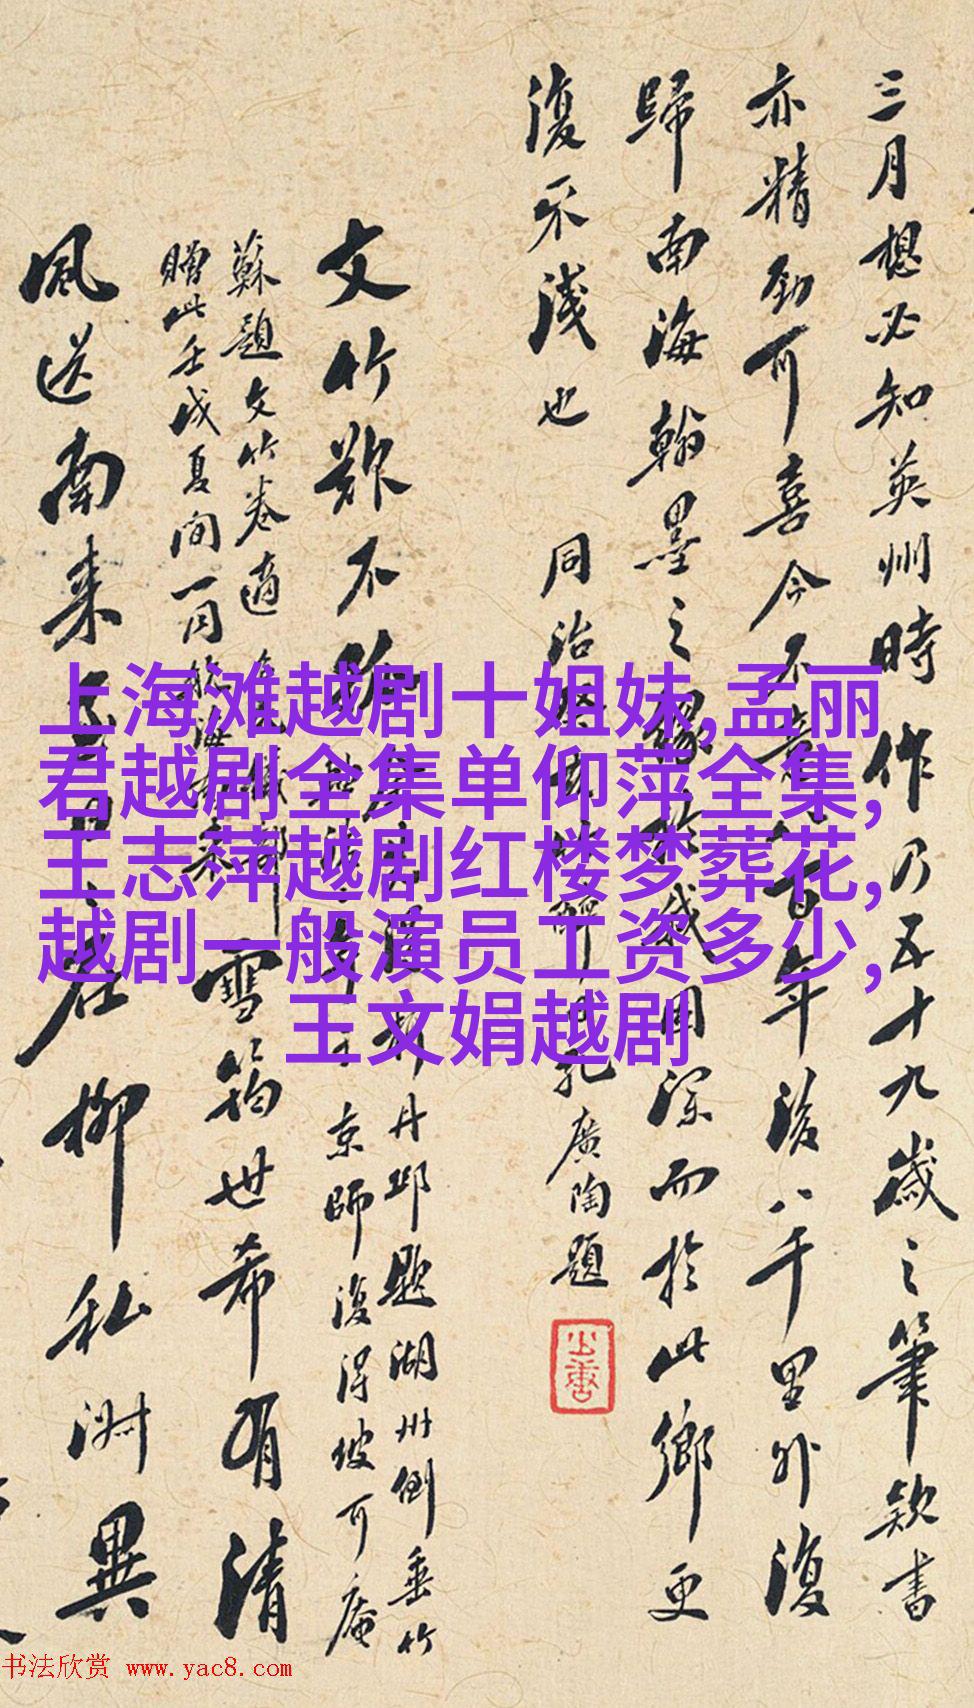 三月想必知英州時作乃五十九歲之筆欵書
亦精勁可喜今不意百年後八千里外復
歸南海翰墨之緣於我固深而於此鄉更
復不淺也 同治
孔廣陶題
文竹蘇不
丹邱題湖州倒垂竹
京師復得坡可庵
蘇題文竹卷適
贈此壬戌夏間一同
雪筠世希有清
風送南来
在柳私洲異
上海滩越剧十姐妹,孟丽
君越剧全集单仰萍全集,
王志萍越剧红楼梦葬花,
越剧一般演员工资多少,
王文娟越剧
书法欣赏 www.yac8.com